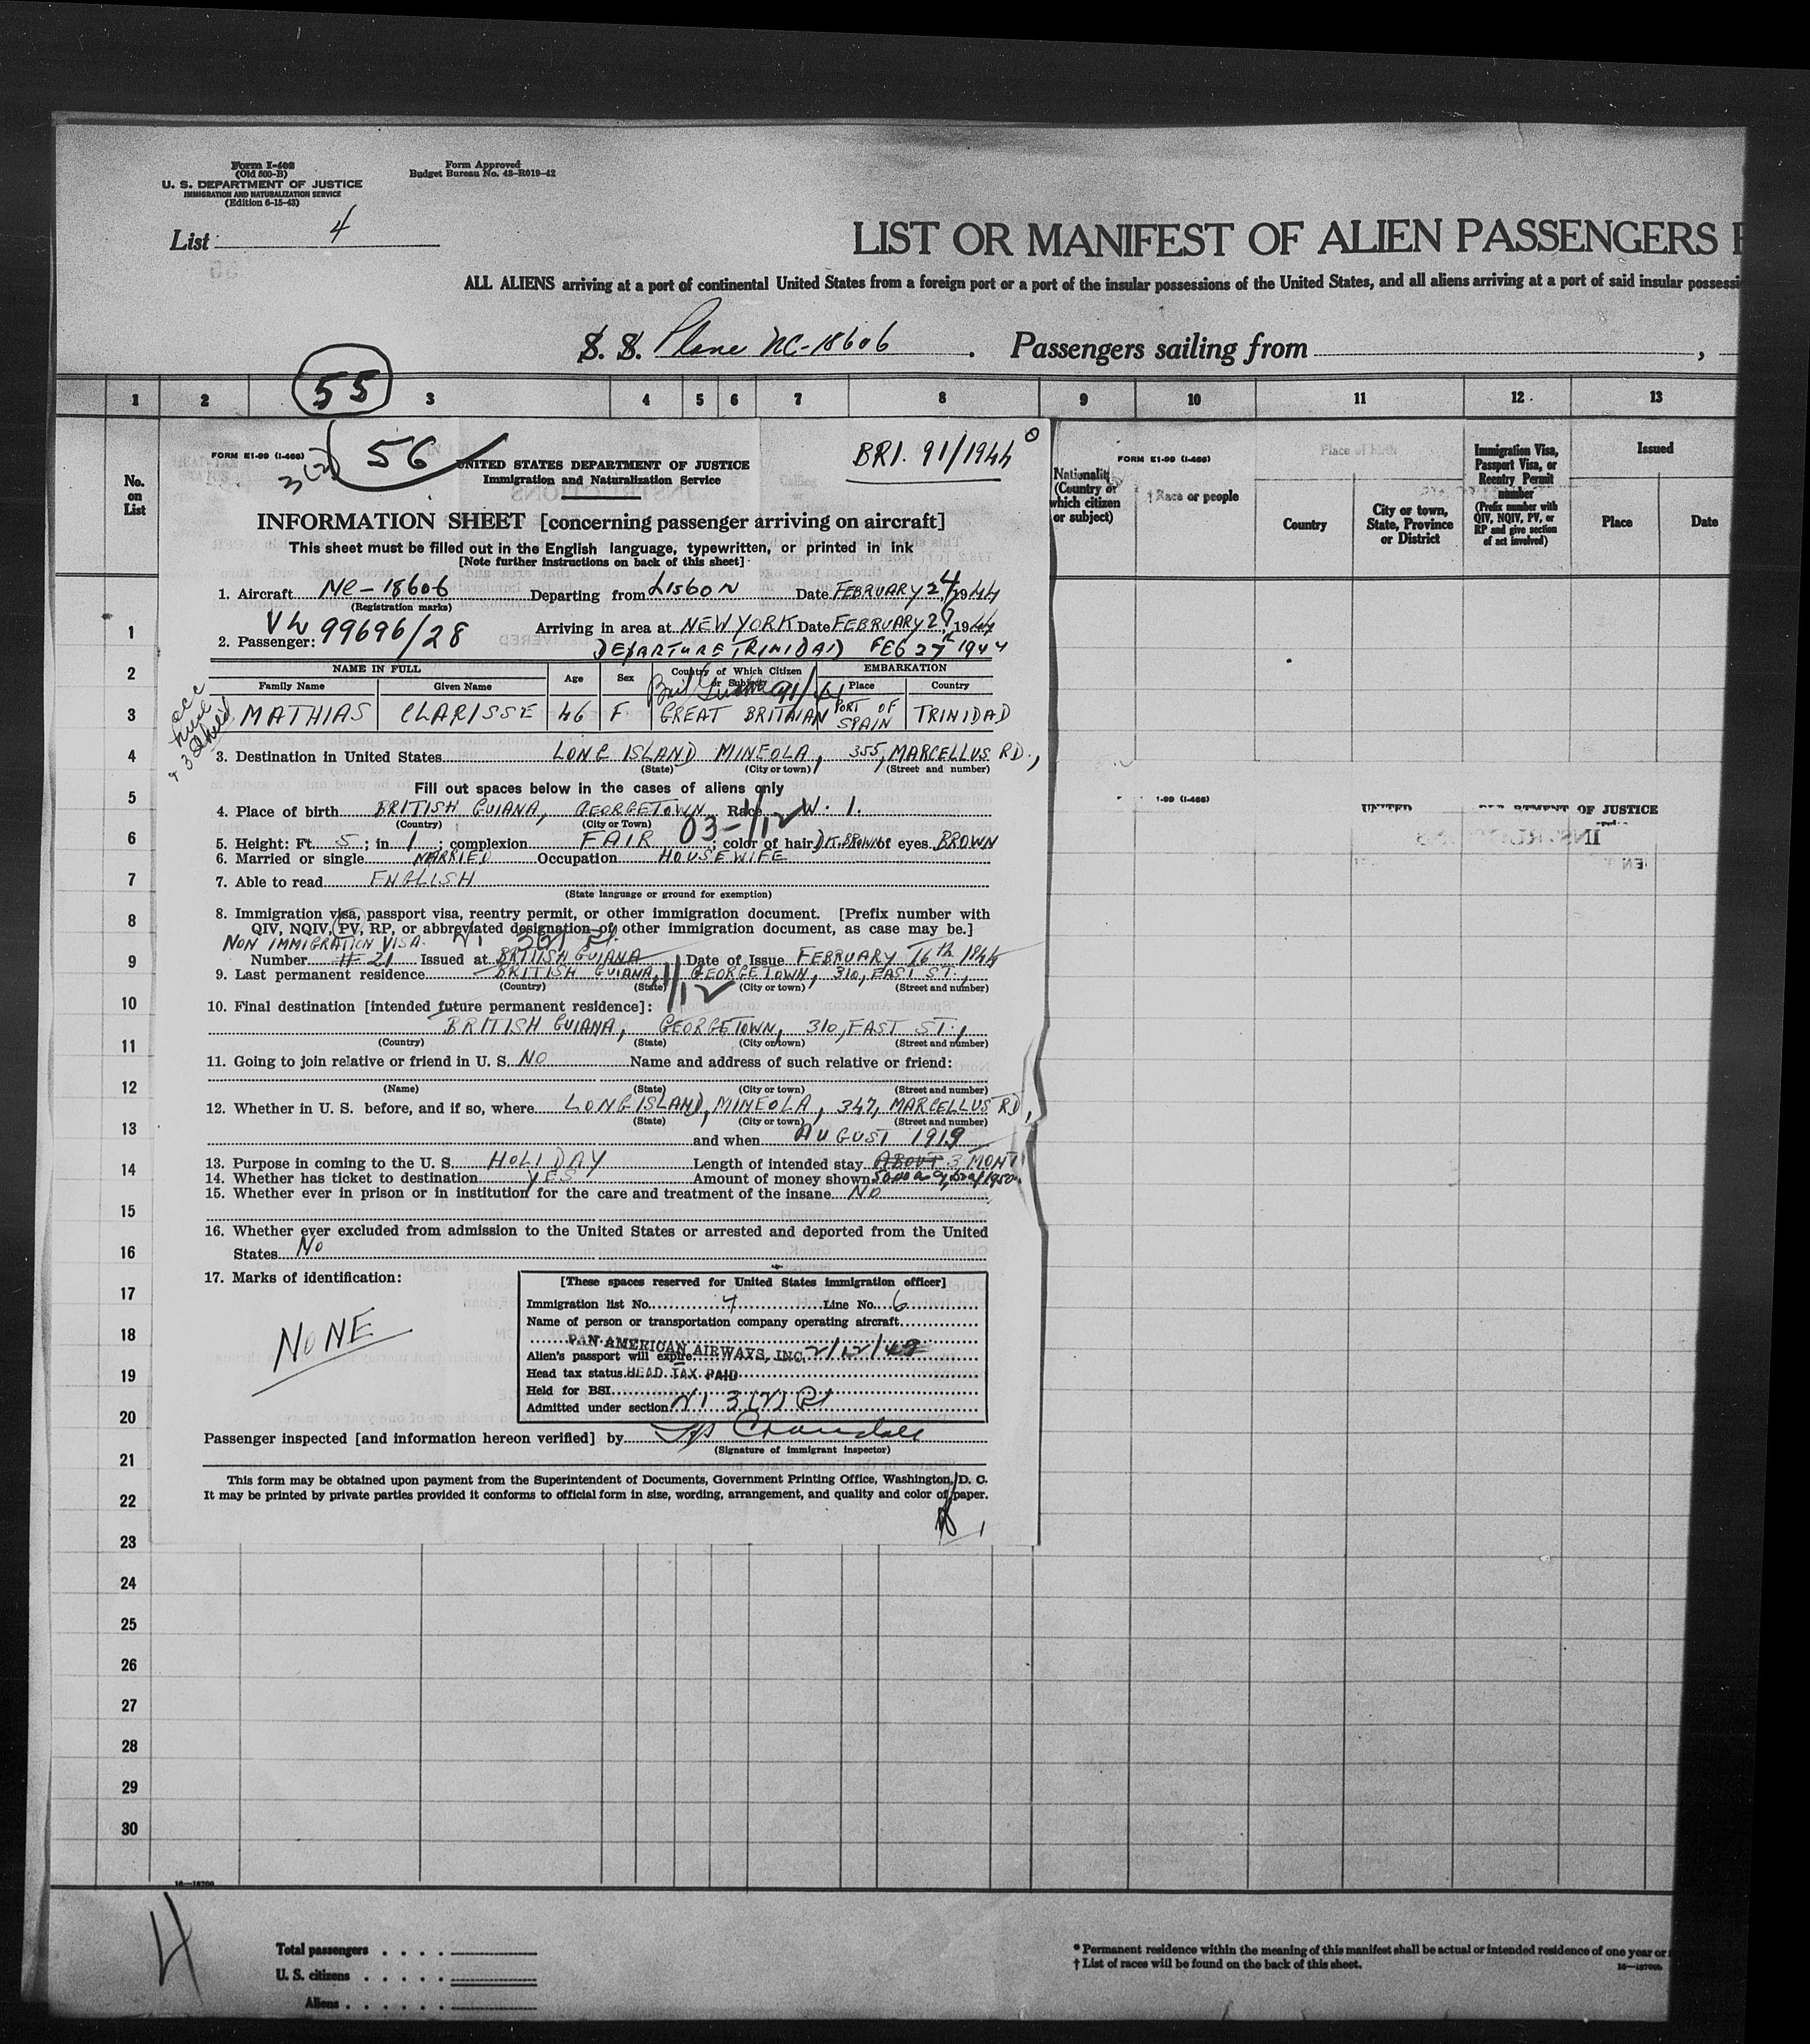 Form I-408
(Old 500-B)
U. S. DEPARTMENT OF JUSTICE
IMMIGRATION AND NATURALIZATION SERVICE
(Edition 6-15-43)
Form Approved
Budget Bureau No. 43-R019-42
List 4
LIST OR MANIFEST OF ALIEN PASSENGERS
ALL ALIENS arriving at a port of continental United States from a foreign port or a port of the insular possessions of the United States, and all aliens arriving at a port of said insular possessi
S. S. Plane NC-18606. Passengers sailing from ,
55
1 2 3 4 5 6 7 8 9 10 11 12 13
No. on List
Nationality (Country of which citizen or subject)
FORM E1-99 (I-466)
† Race or people
Place of birth
Country
City or town, State, Province or District
Immigration Visa, Passport Visa, or Reentry Permit number
(Prefix number with QIV, NQIV, PV, or RP and give section of act involved)
Issued
Place
Date
FORM E1-99 (I-466)
3(2)
56
BRI. 91/1944
UNITED STATES DEPARTMENT OF JUSTICE
Immigration and Naturalization Service
INFORMATION SHEET [concerning passenger arriving on aircraft]
This sheet must be filled out in the English language, typewritten, or printed in ink
[Note further instructions on back of this sheet]
1. Aircraft NC-18606 Departing from LISBON Date FEBRUARY 24, 1944
(Registration marks)
VW 99696/28
Arriving in area at NEW YORK Date FEBRUARY 28, 1944
2. Passenger:
DEPARTURE TRINIDAD FEB 27th 1944
NAME IN FULL Age Sex Country of Which Citizen or Subject EMBARKATION
Family Name Given Name Place Country
MATHIAS CLARISSE 46 F GREAT BRITHIAN PORT OF SPAIN TRINIDAD
3. Destination in United States LONG ISLAND MINEOLA, 355, MARCELLUS RD.,
(State) (City or town) (Street and number)
Fill out spaces below in the cases of aliens only
4. Place of birth BRITISH GUIANA, GEORGETOWN Race W. I.
(Country) (City or Town)
03-1/12
5. Height: Ft. 5; in 1; complexion FAIR; color of hair DK. BROWN of eyes BROWN
6. Married or single MARRIED Occupation HOUSEWIFE
7. Able to read ENGLISH
(State language or ground for exemption)
8. Immigration visa, passport visa, reentry permit, or other immigration document. [Prefix number with
QIV, NQIV, PV, RP, or abbreviated designation of other immigration document, as case may be.]
NON IMMIGRATION VISA.
Number # 21 Issued at BRITISH GUIANA Date of Issue FEBRUARY 16th 1944
9. Last permanent residence BRITISH GUIANA, GEORGETOWN, 310, EAST ST.,
(Country) (State) (City or town) (Street and number)
1/12
10. Final destination [intended future permanent residence]:
BRITISH GUIANA, GEORGETOWN, 310, EAST ST.,
(Country) (State) (City or town) (Street and number)
11. Going to join relative or friend in U. S. NO Name and address of such relative or friend:
(Name) (State) (City or town) (Street and number)
12. Whether in U. S. before, and if so, where LONG ISLAND, MINEOLA, 347, MARCELLUS RD,
(State) (City or town) (Street and number)
and when AUGUST 1919
13. Purpose in coming to the U. S. HOLIDAY Length of intended stay ABOUT 3 MONT
14. Whether has ticket to destination YES Amount of money shown
15. Whether ever in prison or in institution for the care and treatment of the insane NO
16. Whether ever excluded from admission to the United States or arrested and deported from the United
States No
17. Marks of identification:
NONE
[These spaces reserved for United States immigration officer]
Immigration list No. 4 Line No. 6
Name of person or transportation company operating aircraft
PAN AMERICAN AIRWAYS, INC.
Alien's passport will expire 2/12/48
Head tax status HEAD TAX PAID
Held for BSI
Admitted under section 3 (2)
Passenger inspected [and information hereon verified] by Crandall
(Signature of immigrant inspector)
This form may be obtained upon payment from the Superintendent of Documents, Government Printing Office, Washington, D. C.
It may be printed by private parties provided it conforms to official form in size, wording, arrangement, and quality and color of paper.
1-99 (I-466)
UNITED
DEPARTMENT OF JUSTICE
1
2
3
4
5
6
7
8
9
10
11
12
13
14
15
16
17
18
19
20
21
22
23
24
25
26
27
28
29
30
4
Total passengers
U. S. citizens
Aliens
* Permanent residence within the meaning of this manifest shall be actual or intended residence of one year or
† List of races will be found on the back of this sheet.